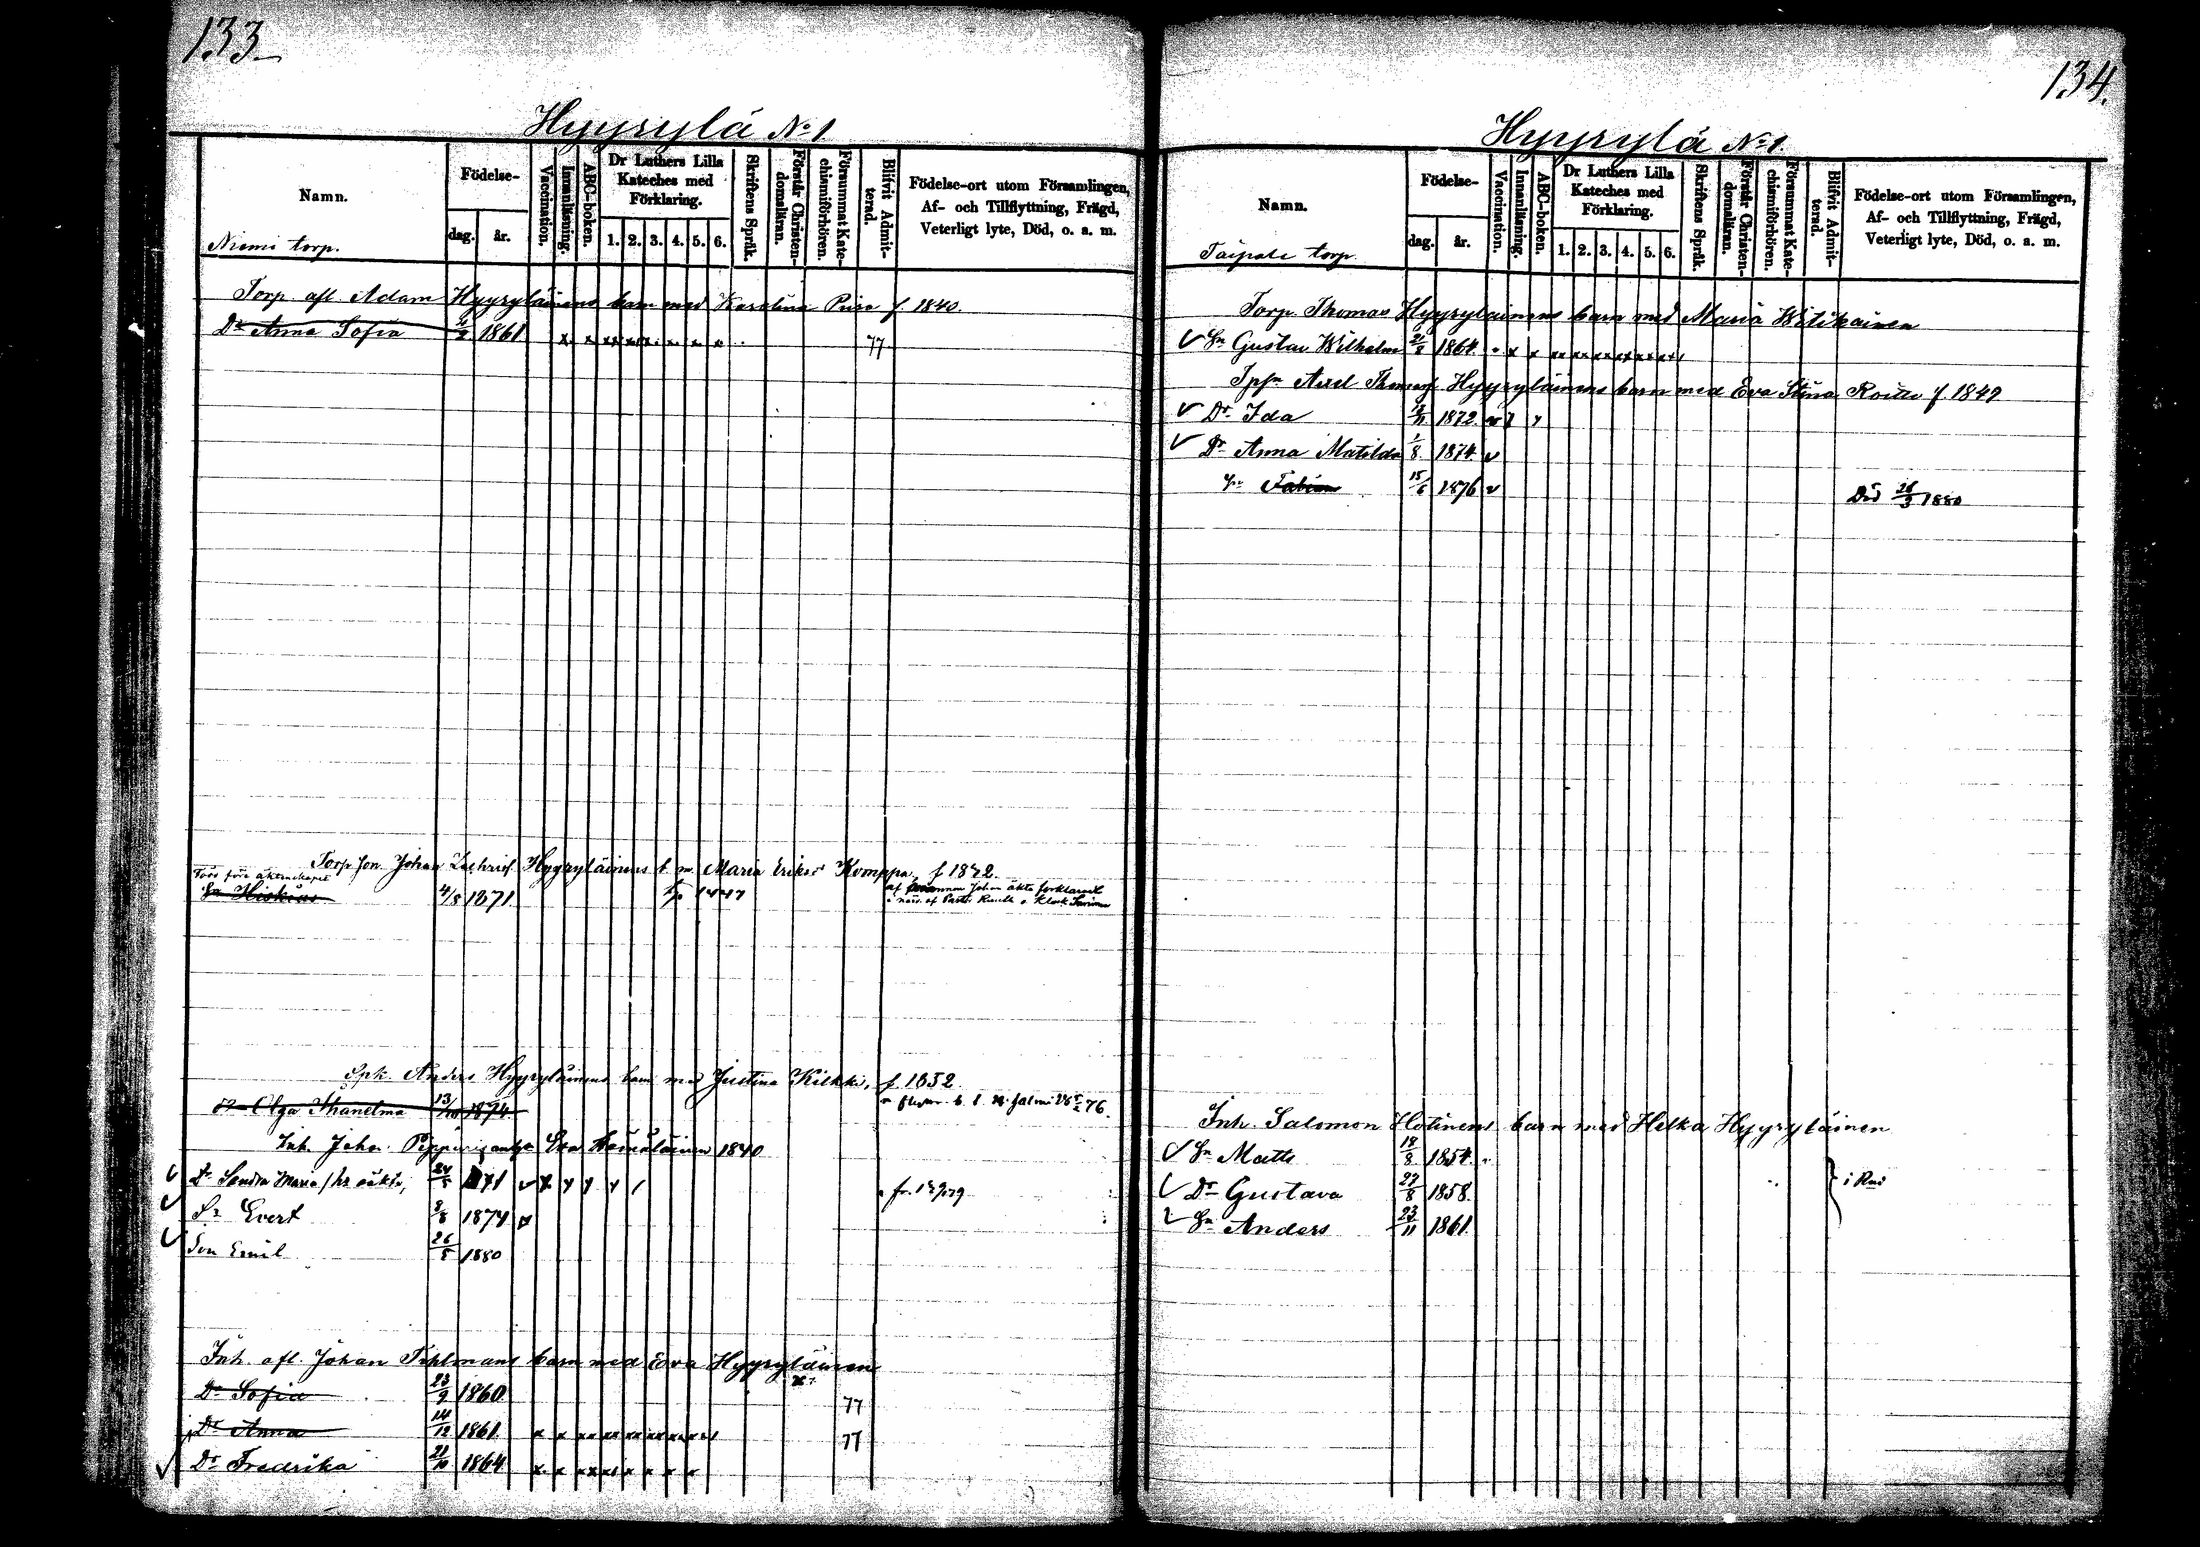 133
Hyyrylä No 1
Namn.
Födelse-
dag.
år.
Vaccination.
Innanläsning.
ABC-boken.
Dr Luthers Lilla
Kateches med
Förklaring.
1. 2. 3. 4. 5. 6.
Skriftens Språk.
Förstår Christen-
domsläran.
Försummat Kate-
chismiförhören.
Blifvit Admit-
terad.
Födelse-ort utom Församlingen,
Af- och Tillflyttning, Frägd,
Veterligt lyte, Död, o. a. m.
Niemi torp.
Torp. afl. Adam Hyyryläinens barn med Karolina f 1840.
Dr Anna Sofia 1861 77
Torp. son Johan Hyyryläinens b. m. Maria Komppa, f 1842.
född före äktenskapet
Sn 4/8 1871
Anders Hyyryläinens barn med Justina Kiekki, f. 1852.
Dr Olga 13/10 1874 76.
Inh. Joha. Eva Hämäläinen 1840
Dr Sandra Maria 1871
Sn Evert 1874
Son Emil 26/5 1880
Inh. afl. Johan barn med Eva Hyyryläinen
Dr Sofia 23/9 1860 77
Dr Anna 14/12 1861 77
Dr Fredrika 21/10 1864
134.
Hyyrylä No 1.
Namn.
Födelse-
dag.
år.
Vaccination.
Innanläsning.
ABC-boken.
Dr Luthers Lilla
Kateches med
Förklaring.
1. 2. 3. 4. 5. 6.
Skriftens Språk.
Förstår Christen-
domsläran.
Försummat Kate-
chismiförhören.
Blifvit Admit-
terad.
Födelse-ort utom Församlingen,
Af- och Tillflyttning, Frägd,
Veterligt lyte, Död, o. a. m.
Taipale torp.
Torp. Thomas Hyyryläinens barn med Maria
Sn Gustav Wilhelm 21/8 1864.
Axel Hyyryläinens barn med Eva Stina f 1849
Dr Ida 1872
Dr Anna Matilda 1/8 1874
Sn Fabian 15/6 1876 Död 26/3 1880
Inh. Salomon Hotinens barn med Helka Hyyryläinen
Sn Matts 18/8 1854
Dr Gustava 27/8 1858. i
Sn Anders 23/11 1861.